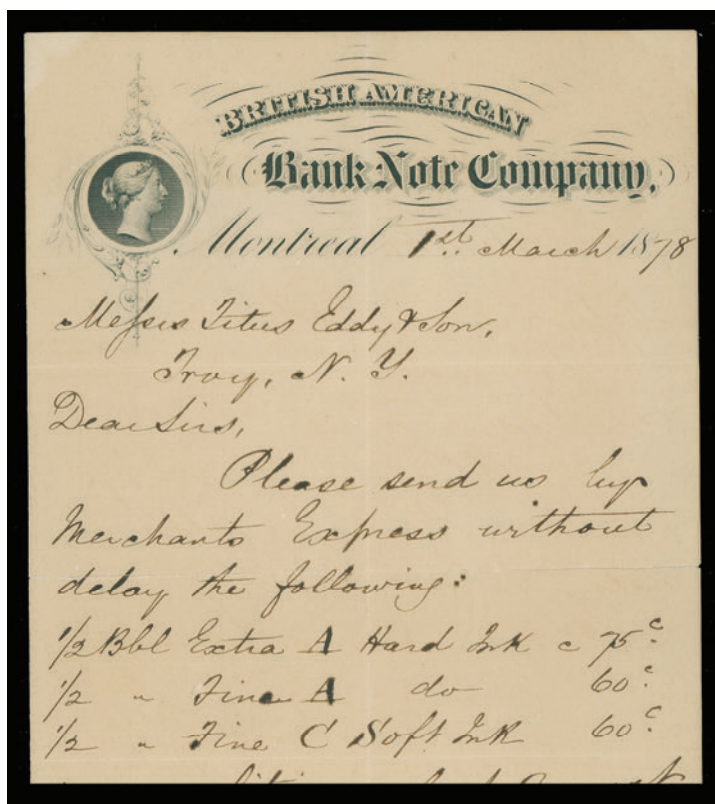 BRITISH AMERICAN
Bank Note Company,
Montreal 1st. March 1878
Messrs Titus Eddy & Son,
Troy, N. Y.
Dear Sirs,
Please send us by
Merchants Express without
delay the following:
1/2 Bbl Extra A Hard Ink c 75c
1/2 " Fine A do 60c
1/2 " Fine C Soft Ink 60c